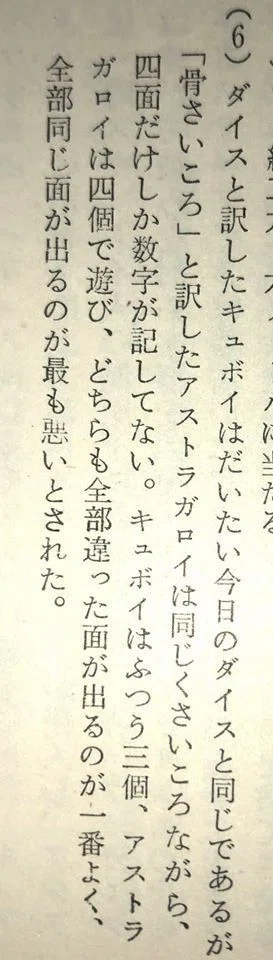 (6) ダイスと訳したキュボイはだいたい今日のダイスと同じであるが
「骨さいころ」と訳したアストラガロイは同じくさいころながら、
四面だけしか数字が記してない。キュボイはふつう三個、アストラ
ガロイは四個で遊び、どちらも全部違った面が出るのが一番よく、
全部同じ面が出るのが最も悪いとされた。